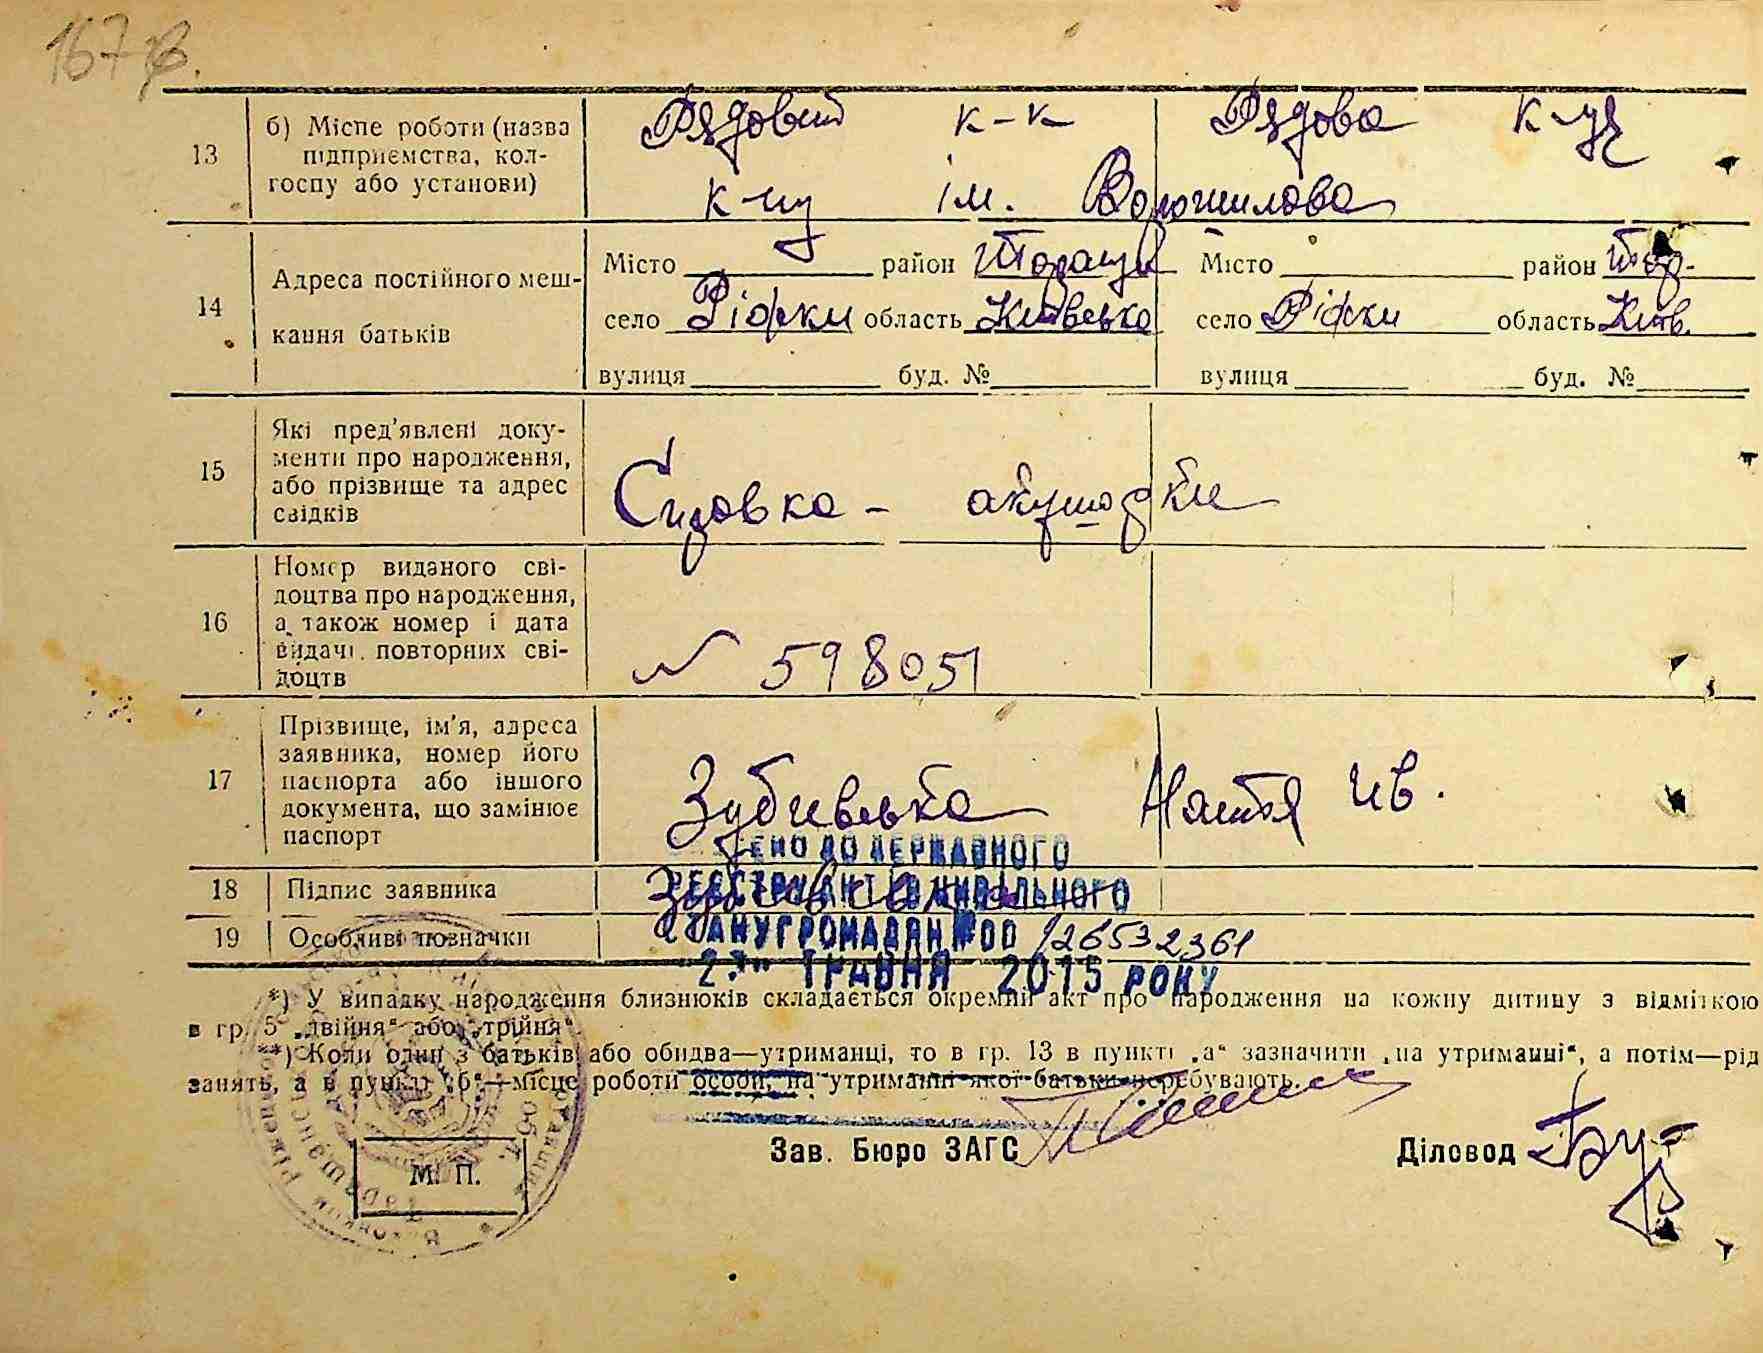 167 зв.
13 б) Місце роботи (назва підприємства, колгоспу або установи)
Рядовий к-к Рядова к-ця
к-пу ім. Ворошилова
14 Адреса постійного мешкання батьків
Місто район Таращ. Місто район Тар.
село Ріжки область Київська село Ріжки область Київ.
вулиця буд. № вулиця буд. №
15 Які пред'явлені документи про народження, або прізвище та адрес свідків
Справка - акушорки
16 Номер виданого свідоцтва про народження, а також номер і дата видачі повторних свідоцтв
№ 598051
17 Прізвище, ім'я, адреса заявника, номер його паспорта або іншого документа, що замінює паспорт
Зубчевська Настя Ив.
18 Підпис заявника
19 Особливі позначки
ЕНО ДО ДЕРЖАВНОГО
РЕЄСТРУ АКТІВ ЦИВІЛЬНОГО
СТАНУ ГРОМАДЯН №00126532361
ТРАВНЯ 2015 РОКУ
*) У випадку народження близнюків складається окремий акт про народження на кожну дитину з відміткою
в гр. 5 „двійня“ або „трійня“.
**) Коли один з батьків або обидва—утриманці, то в гр. 13 в пункті „а“ зазначити „на утриманні“, а потім—рід
занять, а в пункті „б“—місце роботи особи, на утриманні якої батьки перебувають.
М. П.
Зав. Бюро ЗАГС
Діловод